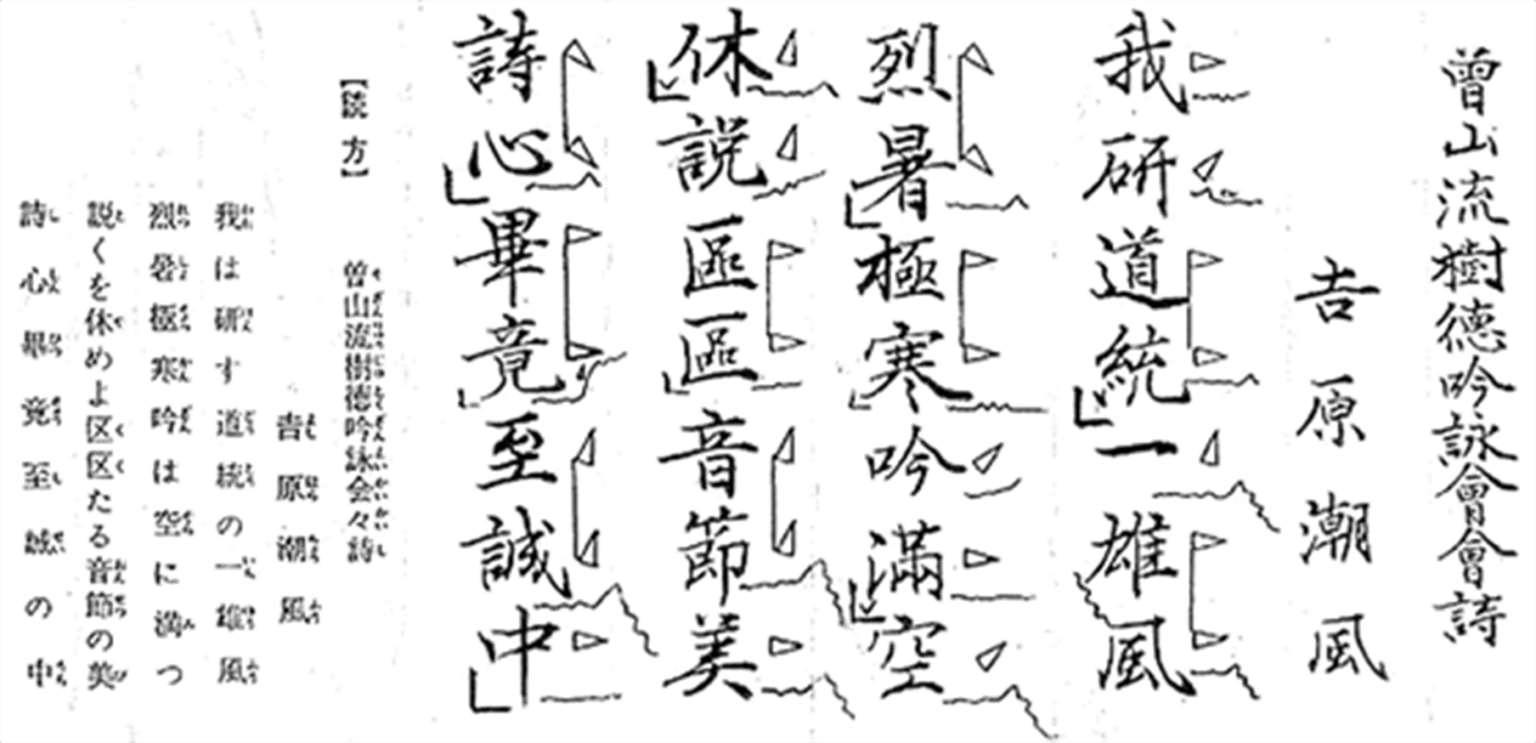 曾山流樹徳吟詠會會詩
吉原潮風
我研道統一雄風
烈暑極寒吟滿空
休説區區音節美
詩心畢竟至誠中
【読方】
曾山流樹徳吟詠会々詩
吉原潮風
我は研す道統の一雄風
烈暑極寒吟は空に満つ
説くを休めよ区区たる音節の美
詩心畢竟至誠の中